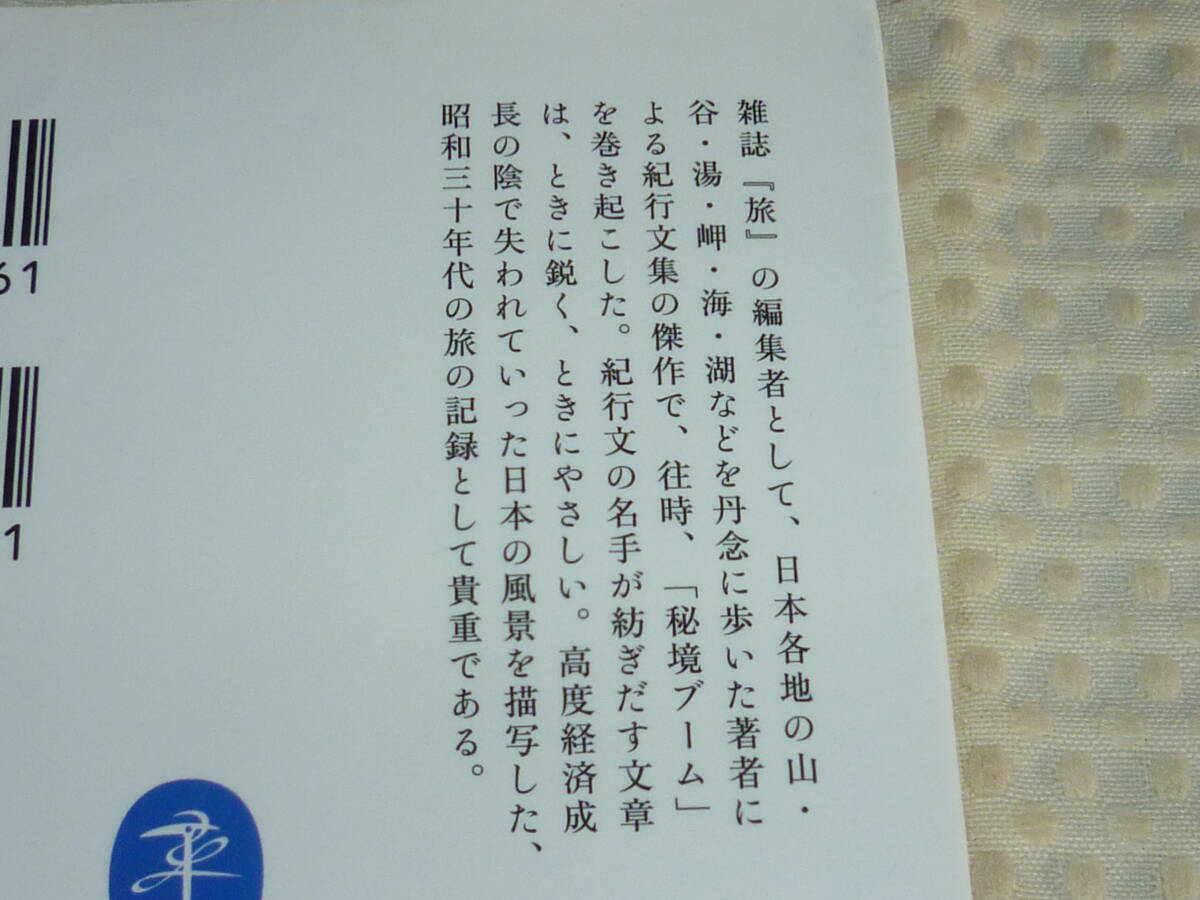 雑誌『旅』の編集者として、日本各地の山・
谷・湯・岬・海・湖などを丹念に歩いた著者に
よる紀行文集の傑作で、往時、「秘境ブーム」
を巻き起こした。紀行文の名手が紡ぎだす文章
は、ときに鋭く、ときにやさしい。高度経済成
長の陰で失われていった日本の風景を描写した、
昭和三十年代の旅の記録として貴重である。
61
1